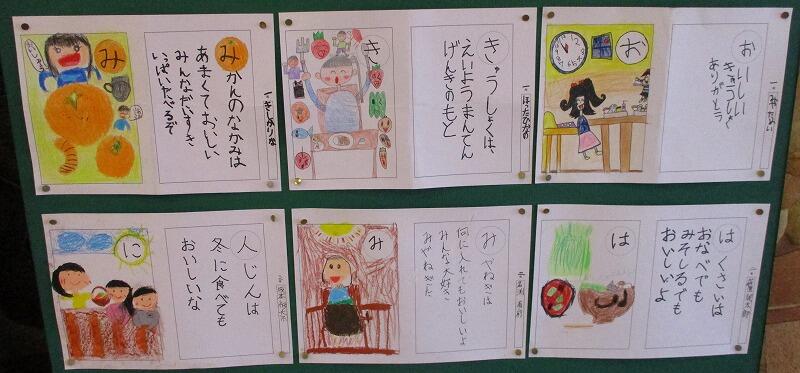 み
みかんのなかみは
あまくておいしい
みんなだいすき
いっぱいたべるぞ
き
きゅうしょくは、
えいようまんてん
げんきのもと
お
おいしい
きゅうしょく
ありがとう
に
人じんは
冬に食べても
おいしいな
み
みやねぎは
何に入れてもおいしいよ
みんな大好き
みやねぎだ
は
はくさいは
おなべでも
みそしるでも
おいしいよ